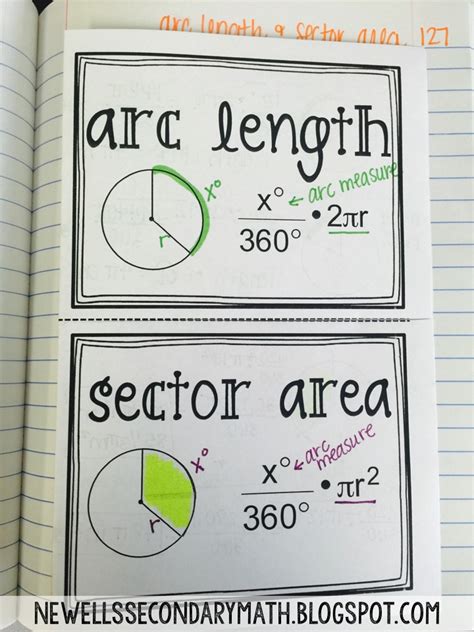 arc length & sector area 127
arc length
x°
r
x° ← arc measure
360° • 2πr
sector area
x°
r
x° ← arc measure
360° • πr²
NEWELLSSECONDARYMATH.BLOGSPOT.COM